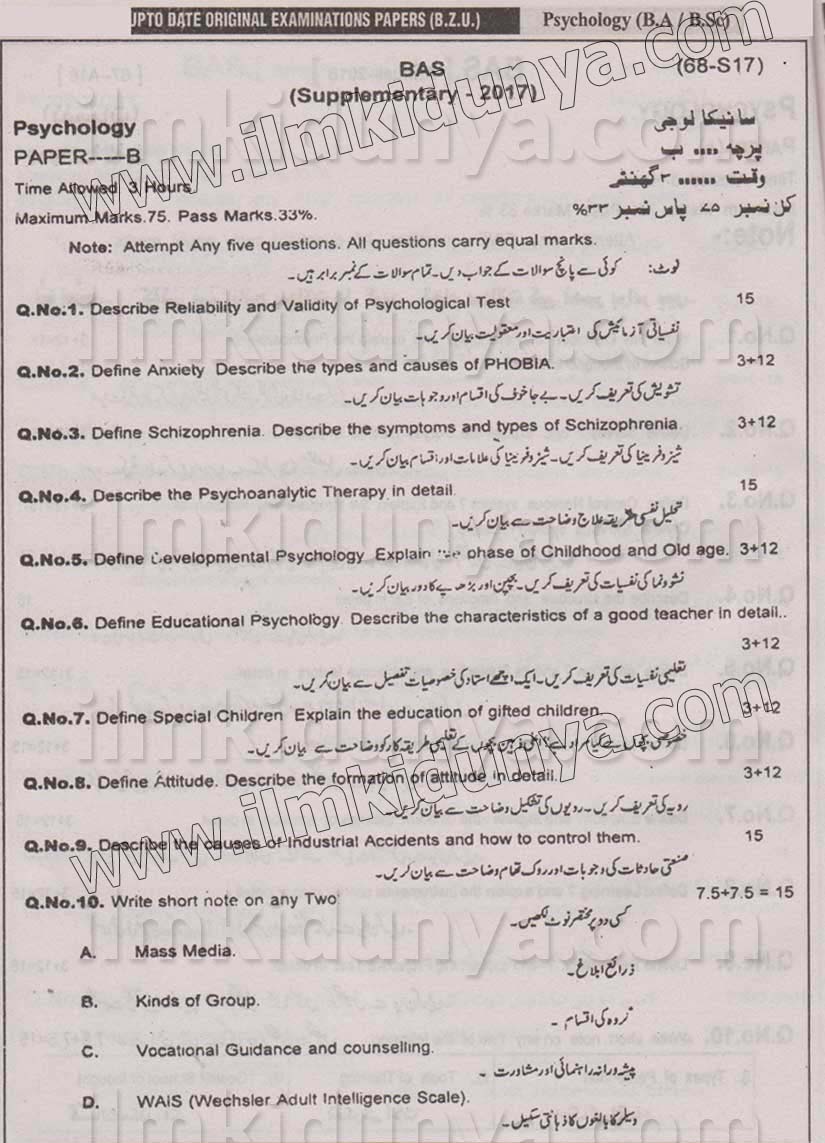 UPTO DATE ORIGINAL EXAMINATIONS PAPERS (B.Z.U.) Psychology (B.A / B.Sc)
BAS (68-S17)
(Supplementary - 2017)
Psychology سائیکالوجی
PAPER-----B پرچہ .... ب
Time Allowed 3 Hours وقت ...... ۳ گھنٹے
Maximum Marks.75. Pass Marks.33%. کل نمبر ۷۵ پاس نمبر ۳۳%
Note: Attempt Any five questions. All questions carry equal marks.
نوٹ: کوئی سے پانچ سوالات کے جواب دیں۔ تمام سوالات کے نمبر برابر ہیں۔
Q.No.1. Describe Reliability and Validity of Psychological Test 15
نفسیاتی آزمائیش کی اعتباریت اور معقولیت بیان کریں۔
Q.No.2. Define Anxiety Describe the types and causes of PHOBIA. 3+12
تشویش کی تعریف کریں۔ بے جا خوف کی اقسام اور وجوہات بیان کریں۔
Q.No.3. Define Schizophrenia. Describe the symptoms and types of Schizophrenia 3+12
شیزوفرینیا کی تعریف کریں۔ شیزوفرینیا کی علامات اور اقسام بیان کریں۔
Q.No.4. Describe the Psychoanalytic Therapy in detail. 15
تحلیل نفسی طریقہ علاج وضاحت سے بیان کریں۔
Q.No.5. Define Developmental Psychology Explain the phase of Childhood and Old age. 3+12
نشوونما کی نفسیات کی تعریف کریں۔ بچپن اور بڑھاپے کا دور بیان کریں۔
Q.No.6. Define Educational Psychology Describe the characteristics of a good teacher in detail..
3+12
تعلیمی نفسیات کی تعریف کریں۔ ایک اچھے استاد کی خصوصیات تفصیل سے بیان کریں۔
Q.No.7. Define Special Children Explain the education of gifted children. 3+12
خصوصی بچوں سے کیا مراد ہے؟ اعلی ذہین بچوں کے تعلیمی طریقہ کار کو وضاحت سے بیان کریں۔
Q.No.8. Define Attitude. Describe the formation of attitude in detail. 3+12
رویہ کی تعریف کریں۔ رویوں کی تشکیل وضاحت سے بیان کریں۔
Q.No.9. Describe the causes of Industrial Accidents and how to control them. 15
صنعتی حادثات کی وجوہات اور روک تھام وضاحت سے بیان کریں۔
Q.No.10. Write short note on any Two: 7.5+7.5 = 15
کسی دو پر مختصر نوٹ لکھیں۔
A. Mass Media.
ذرائع ابلاغ۔
B. Kinds of Group.
گروہ کی اقسام۔
C. Vocational Guidance and counselling.
پیشہ ورانہ راہنمائی اور مشاورت۔
D. WAIS (Wechsler Adult Intelligence Scale).
ویسلر کا بالغوں کا ذہانتی سکیل۔
www.ilmkidunya.com
www.ilmkidunya.com
ilmkidunya.com
ilmkidunya.com
ilmkidunya.com
ilmkidunya.com
ilmkidunya.com